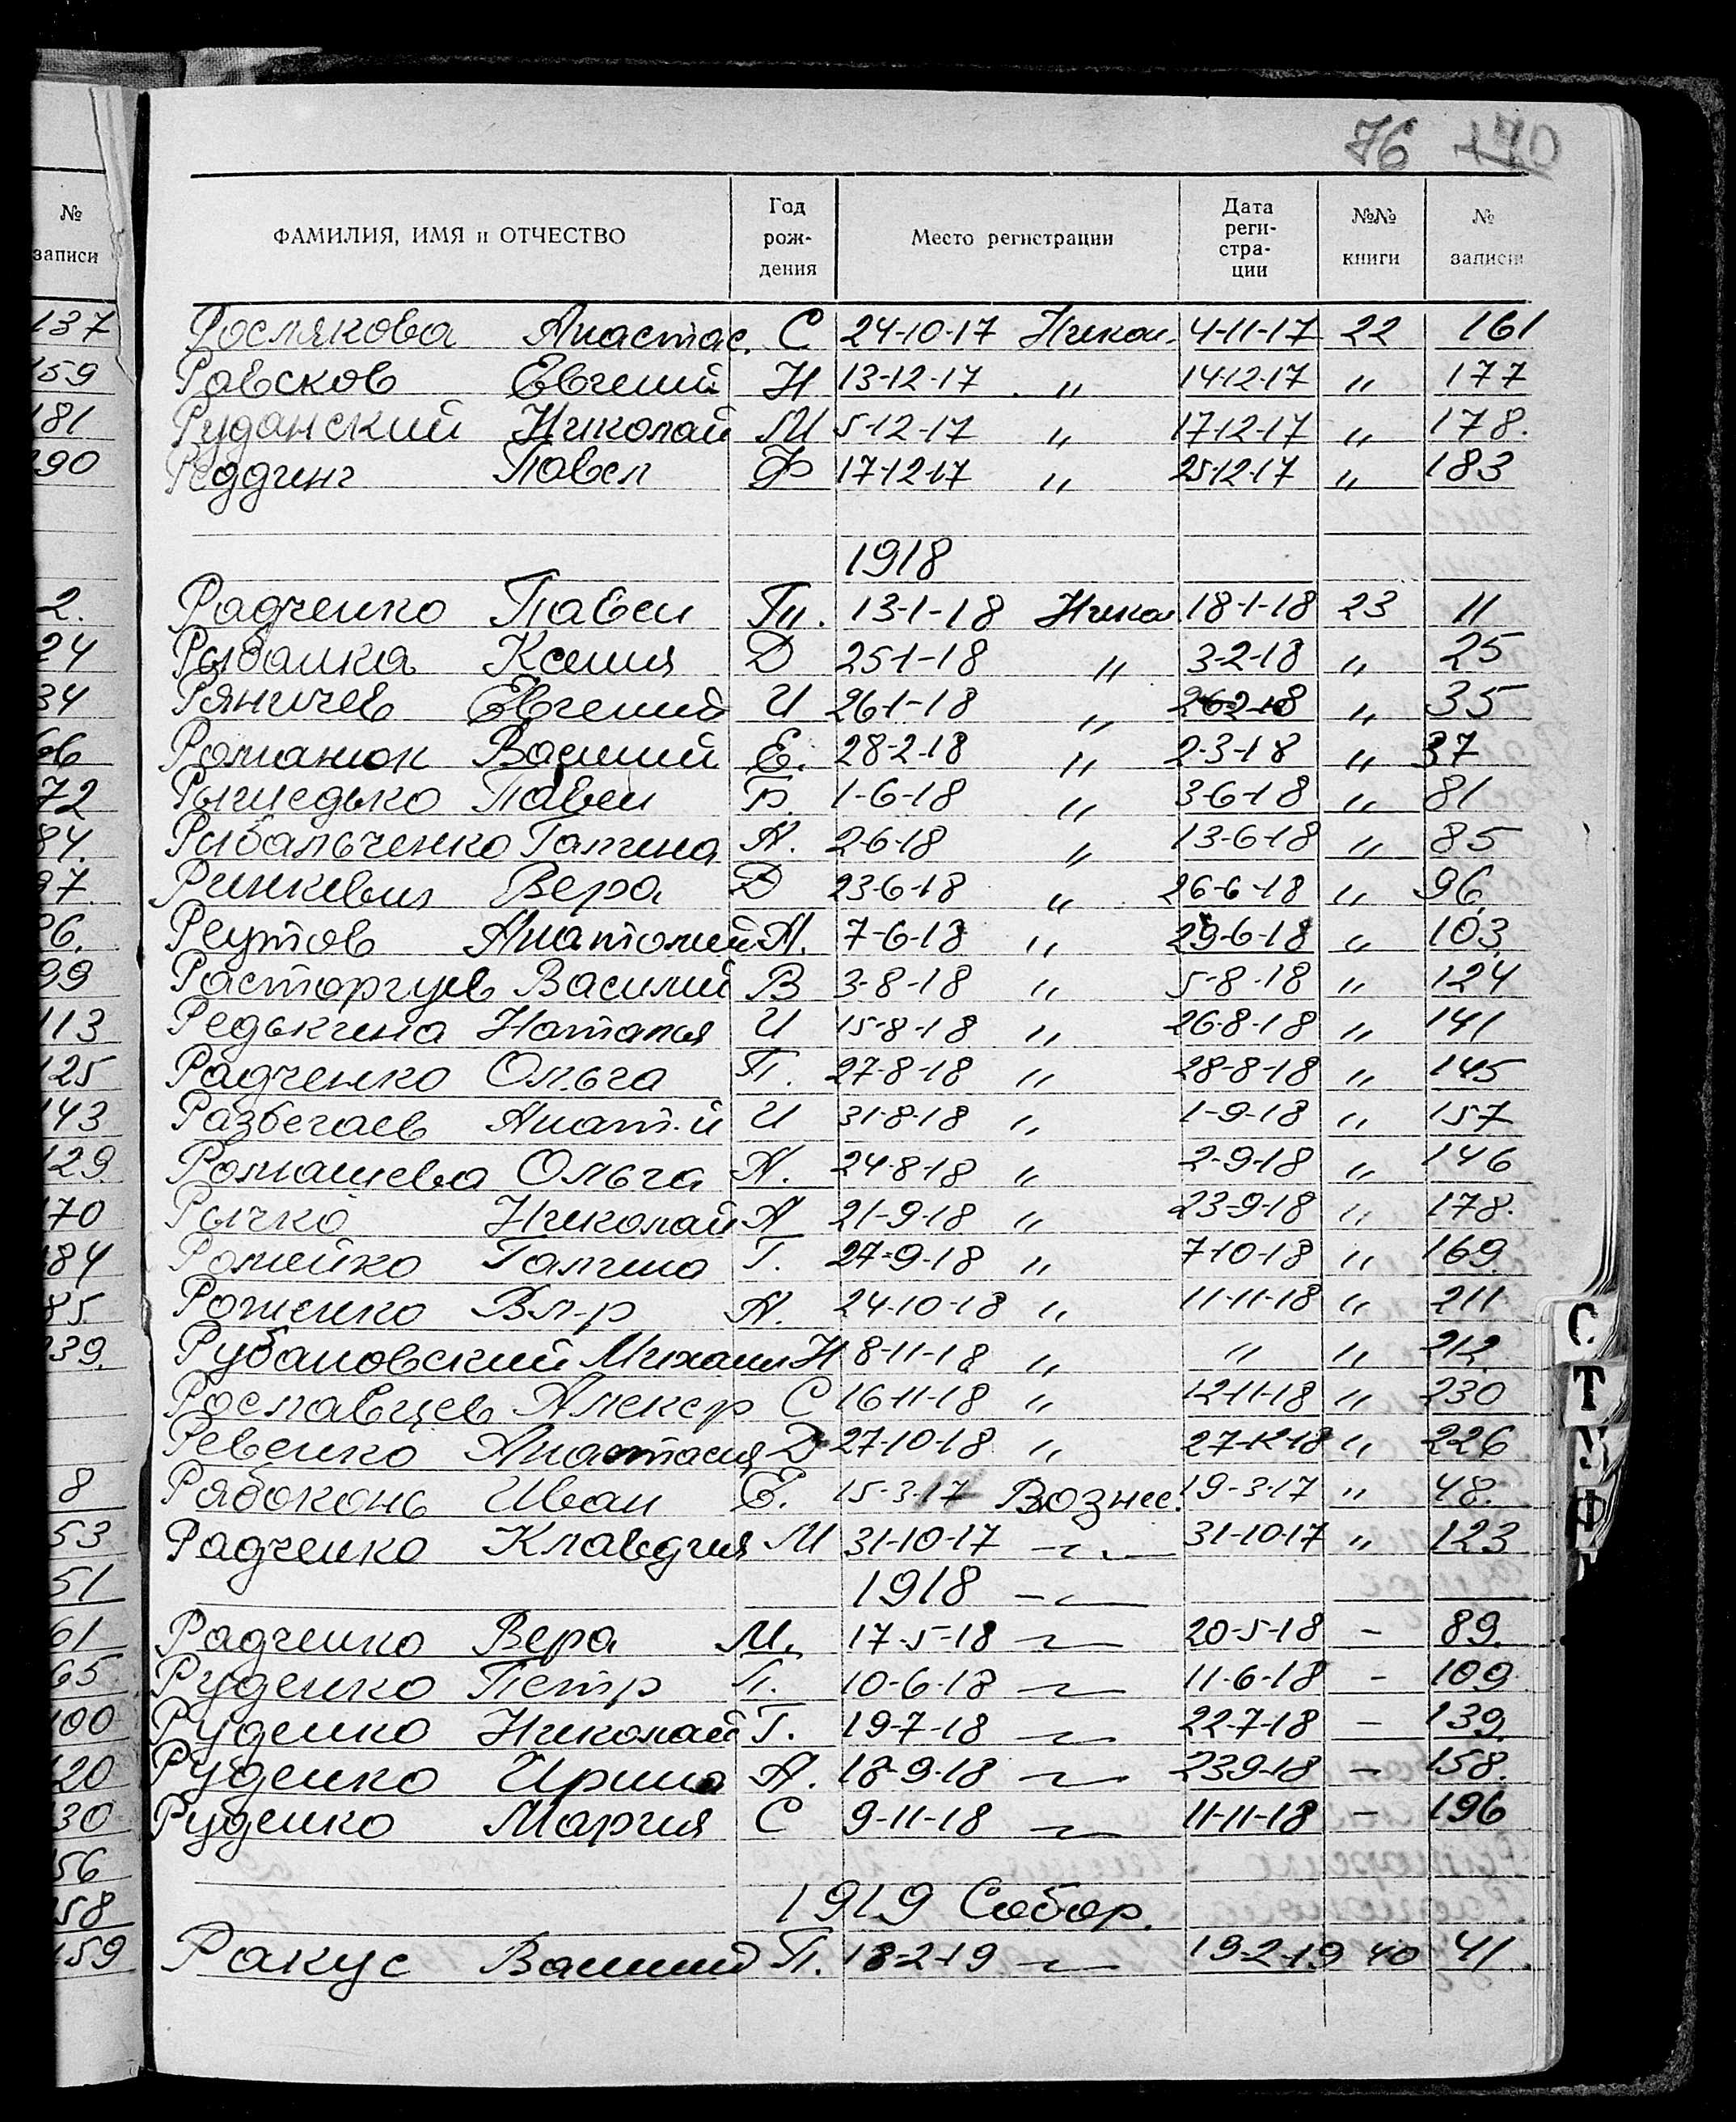 76 170
№ записи
ФАМИЛИЯ, ИМЯ и ОТЧЕСТВО Год рож- дения Место регистрации Дата реги- стра- ции №№ книги № записи
137 Рослякова Анастас. С 24-10-17 Никол. 4-11-17 22 161
159 Равсков Евгений Н 13-12-17 " 14-12-17 " 177
181 Руданский Николай М 5-12-17 " 17-12-17 " 178.
190 Реддинг Павел Ф 17-12-17 " 25-12-17 " 183
1918
2. Радченко Павел Гл. 13-1-18 Никол 18-1-18 23 11
24 Рыбалка Ксения Д 25-1-18 " 3-2-18 " 25
34 Ряничев Евгений И 26-1-18 " 26-2-18 " 35
66 Романюк Василий Е. 28-2-18 " 2-3-18 " 37
72 Павел 1-6-18 " 3-6-18 " 81
84. Рыбальченко Галина А. 2-6-18 " 13-6-18 " 85
97. Ринкевич Вера Д 23-6-18 " 26-6-18 " 96
96. Реутов Анатолий А. 7-6-18 " 29-6-18 " 103
99 Расторгуев Василий В 3-8-18 " 5-8-18 " 124
113 Редькина Наталья И 15-8-18 " 26-8-18 " 141
125 Радченко Ольга П. 27-8-18 " 28-8-18 " 145
143 Разбегаев Анат.й И 31-8-18 " 1-9-18 " 157
129. Ромашева Ольга А. 24-8-18 " 2-9-18 " 146
170 Рычко Николай А 21-9-18 " 23-9-18 " 178.
184 Ромейко Галина Г. 27-9-18 " 7-10-18 " 169.
85. Роменко Вл-р А. 24-10-18 " 11-11-18 " 211
139. Рубановский Михаил Н 8-11-18 " " " 212
Рославцев Алекср С 16-11-18 " 12-11-18 " 230
Ревенко Анастасия Д 27-10-18 " 27-12-18 " 226
8 Рябоконь Иван Е. 15-3-17 Вознес. 19-3-17 " 48.
53 Радченко Клавдия М 31-10-17 -"- 31-10-17 " 123
51 1918 -"-
61 Радченко Вера М. 17-5-18 -"- 20-5-18 - 89.
65 Руденко Петр П. 10-6-18 -"- 11-6-18 - 109
100 Руденко Николай Г. 19-7-18 -"- 22-7-18 - 139.
120 Руденко Ирина А. 18-9-18 -"- 23-9-18 - 158.
130 Руденко Мария С 9-11-18 -"- 11-11-18 - 196
156
158 1919 Собор.
159 Ракус Василий П. 18-2-19 -"- 19-2-19 40 41.
С
Т
У
Ф